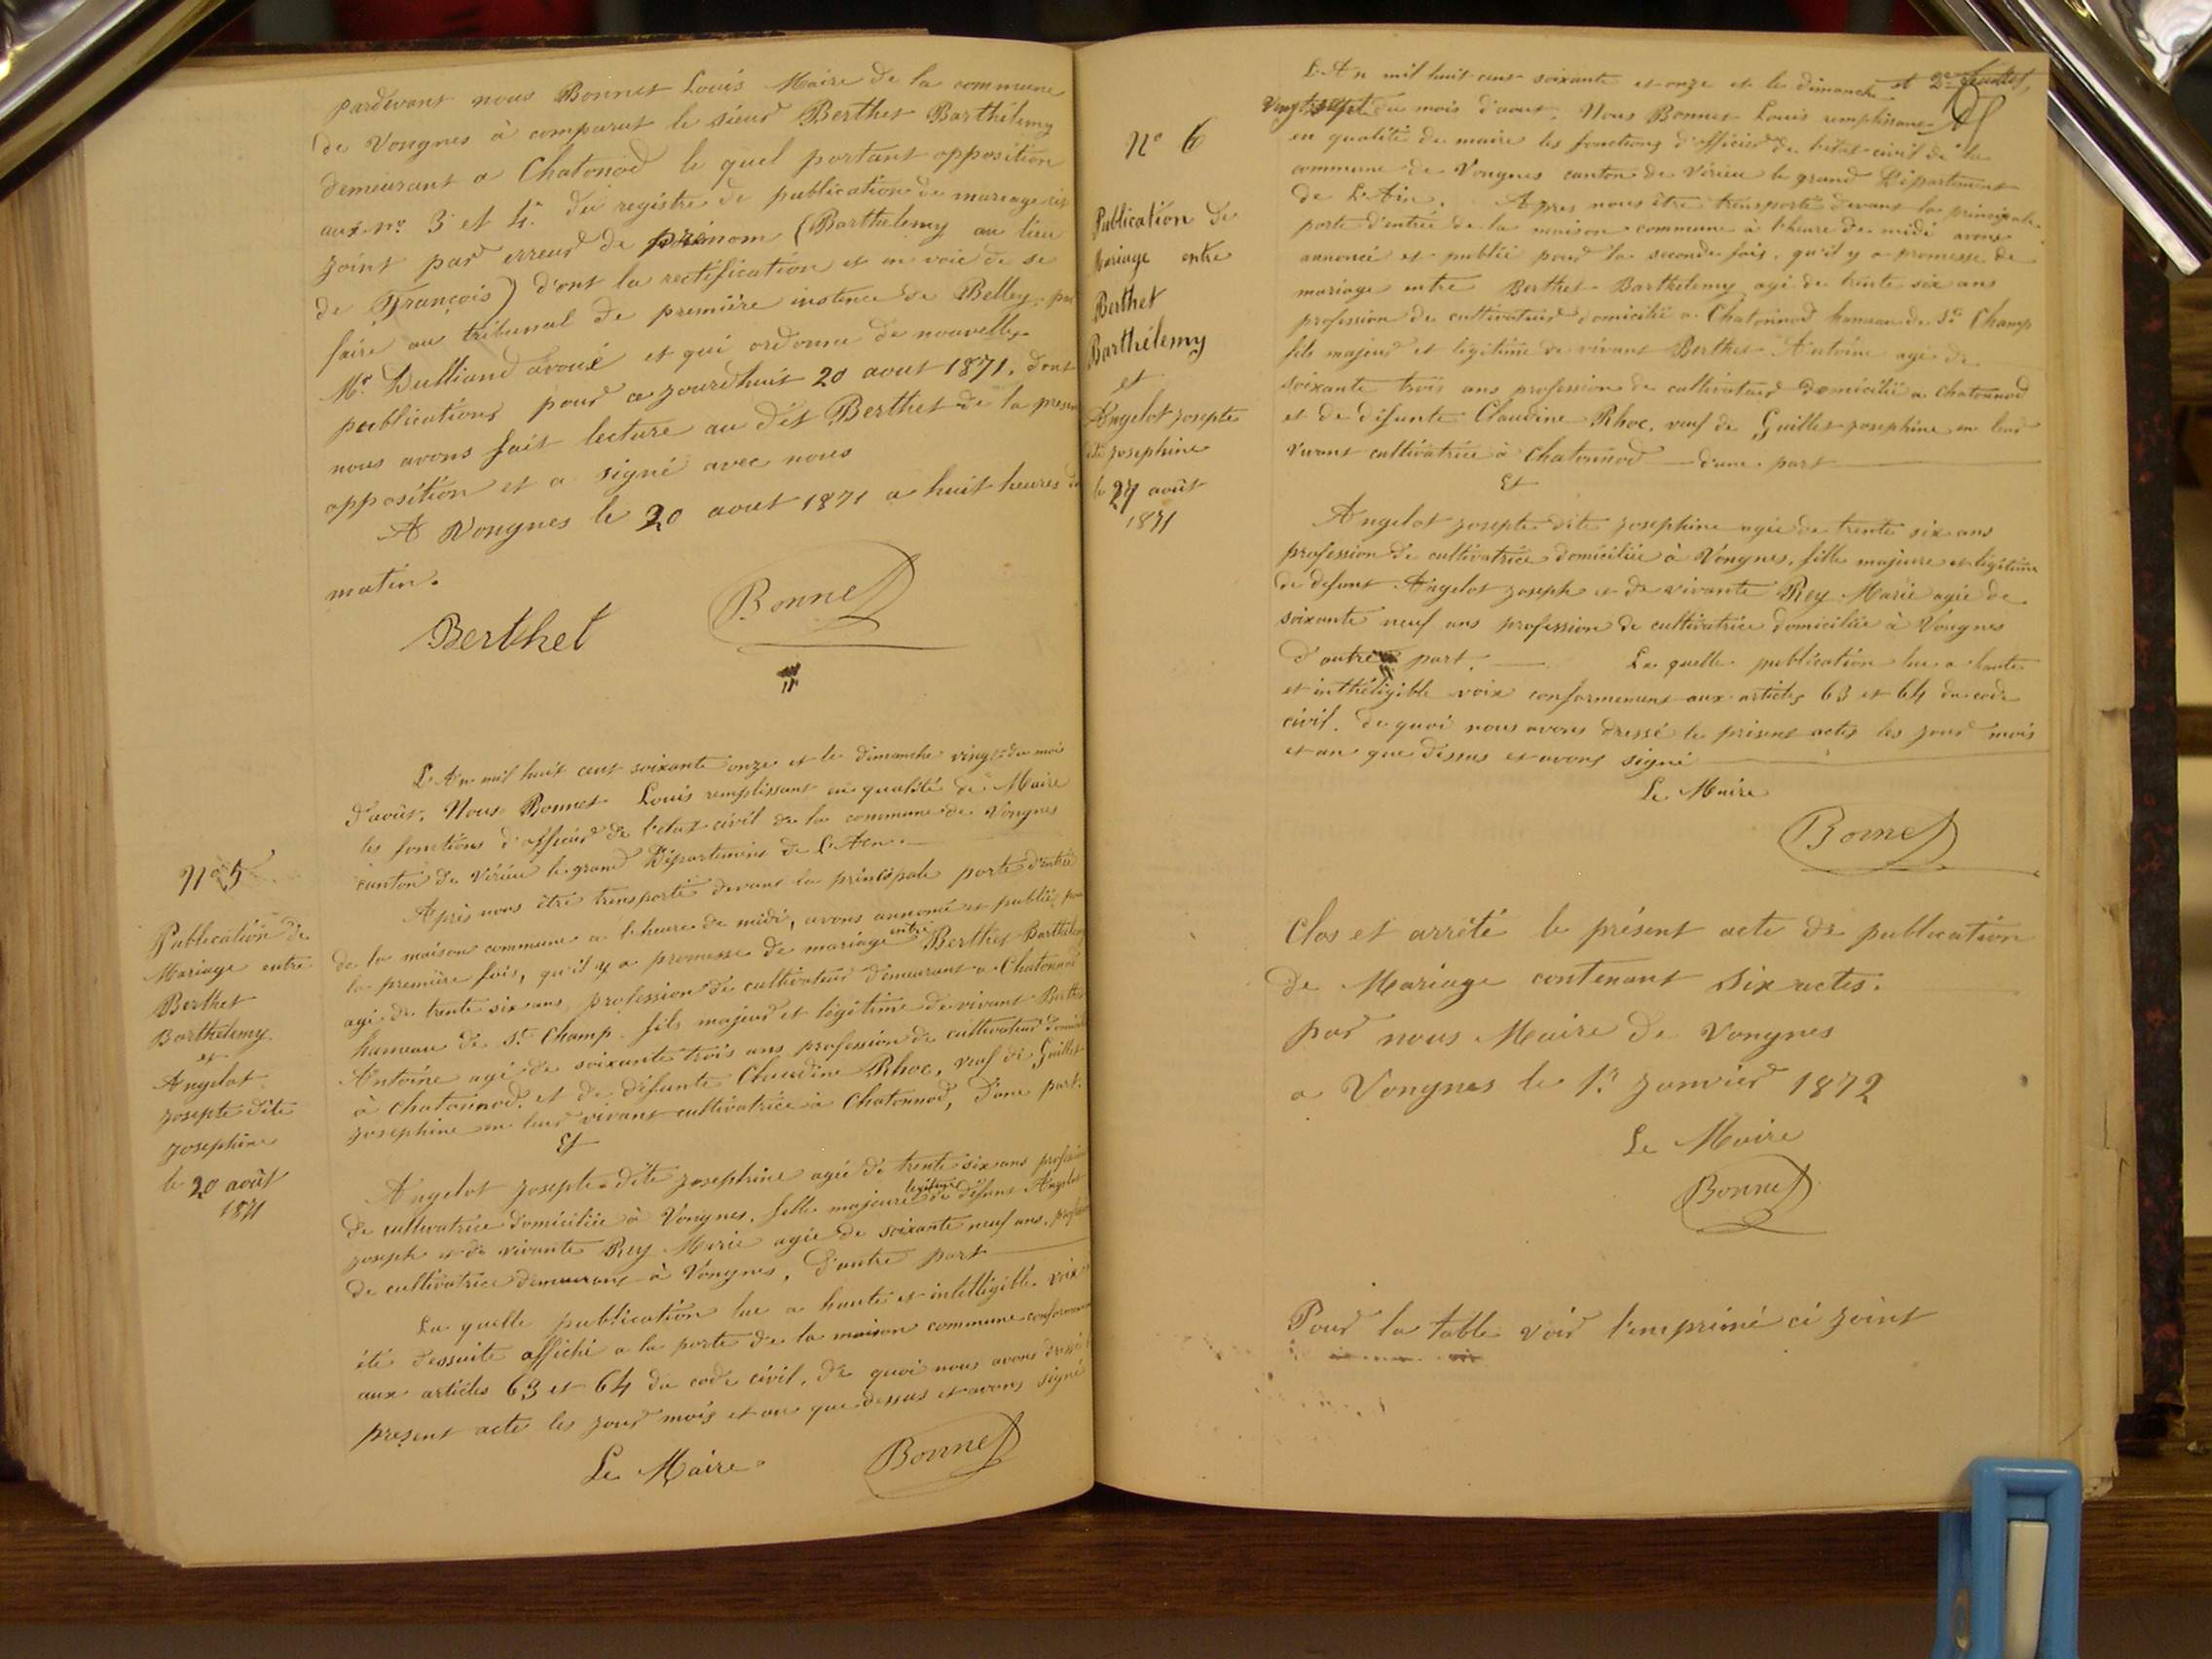 pardevant nous Bonnet Louis Maire de la commune
de Vongnes à comparut le sieur Berthet Barthélemy
demeurant a Chatonod le quel portant opposition
aux nos 3 et 4 du registre de publication de mariage ci
joint par erreur de prénom (Barthelemy au lieu
de François) d'ont la rectification et en voie de se
faire au tribunal de première instence de Belley, par
Mr. Dulliand avoué et qui ordonne de nouvelles
publications pour ce jourd'huit 20 aout 1871, dont
nous avons fait lecture au dit Berthet de la present
opposition et a signé avec nous
A Vongnes le 20 aout 1871 a huit heures du
matin.
Berthet Bonnet
No 5
Publication de
Mariage entre
Berthet
Barthélemy
et
Angelot
Josepte dite
Josephine
le 20 août
1871
L'An mil huit cent soixante onze et le dimanche vingt du mois
d'août, Nous Bonnet Louis remplissant en qualité de Maire
les fonctions d'officier de l'etat civil de la commune de Vongnes
canton de Virieu le grand Département de L'Ain.
Après nous être transporté devant la principale porte d'entrée
de la maison commune a l'heure de midi, avons annoncé et publié pour
la première fois, qu'il y a promesse de mariage entre Berthet Barthélemy
agé de trente six ans, profession de cultivateur demeurant a Chatonnod
hameau de St. Champ fils majeur et légitime de vivant Berthet
Antoine agé de soixante trois ans profession de cultivateur domicilié
à Chatonnod et de défunte Claudine Rhoc, veuf de Guillet
Josephine en leur vivant cultivatrice à Chatonnod, d'une part.
Et
Angelot Josepte dite Josephine agée de trente six ans profession
de cultivatrice domiciliée à Vongnes, fille majeure légitime de défunt Angelot
Joseph et de vivante Rey Marie agée de soixante neuf ans, profession
de cultivatrice demeurant à Vongnes, d'autre part
La quelle publication lue a haute et intelligible voix
été d'essuite affiché a la porte de la maison commune conformement
aux articles 63 et 64 du code civil, de quoi nous avons dressé
present acte les jour mois et an que dessus et avons signé
Le Maire Bonnet
No 6
Publication de
Mariage entre
Berthet
Barthélemy
et
Angelot Josepte
dite Josephine
le 27 août
1871
L'An mil huit cent soixante et onze et le dimanche
vingt sept du mois d'aout, Nous Bonnet Louis remplissant
en qualité de maire les fonctions d'officier de l'état civil de la
commune de Vongnes canton de Virieu le grand Département
de L'Ain. Apres nous être transporté devant la principale
porte d'entrée de la maison commune à l'heure de midi avons
annoncé et publié pour la seconde fois, qu'il y a promesse de
mariage entre Berthet Barthelemy agé de trente six ans
profession de cultivateur domicilié a Chatonnod hameau de St. Champ
fils majeur et légitime de vivant Berthet Antoine agé de
soixante trois ans profession de cultivateur domicilié a Chatonnod
et de défunte Claudine Rhoc, veuf de Guillet Josephine en leur
vivant cultivatrice à Chatonnod d'une part
Et
Angelot Josepte dite Josephine agée de trente six ans
profession de cultivatrice domiciliée à Vongnes, fille majeure et légitime
de defunt Angelot Joseph et de vivante Rey Marie agée de
soixante neuf ans profession de cultivatrice domiciliée à Vongnes
d'autre part. La quelle publication lue a haute
et inthéligible voix conformement aux articles 63 et 64 du code
civil, de quoi nous avons dressé le présent actes les jour mois
et an que dessus et avons signé
Le Maire
Bonnet
Clos et arrêté le présent acte de publication
de Mariage contenant six actes.
par nous Maire de Vongnes
a Vongnes le 1er Janvier 1872
Le Maire
Bonnet
Pour la table voir l'imprimé ci joint